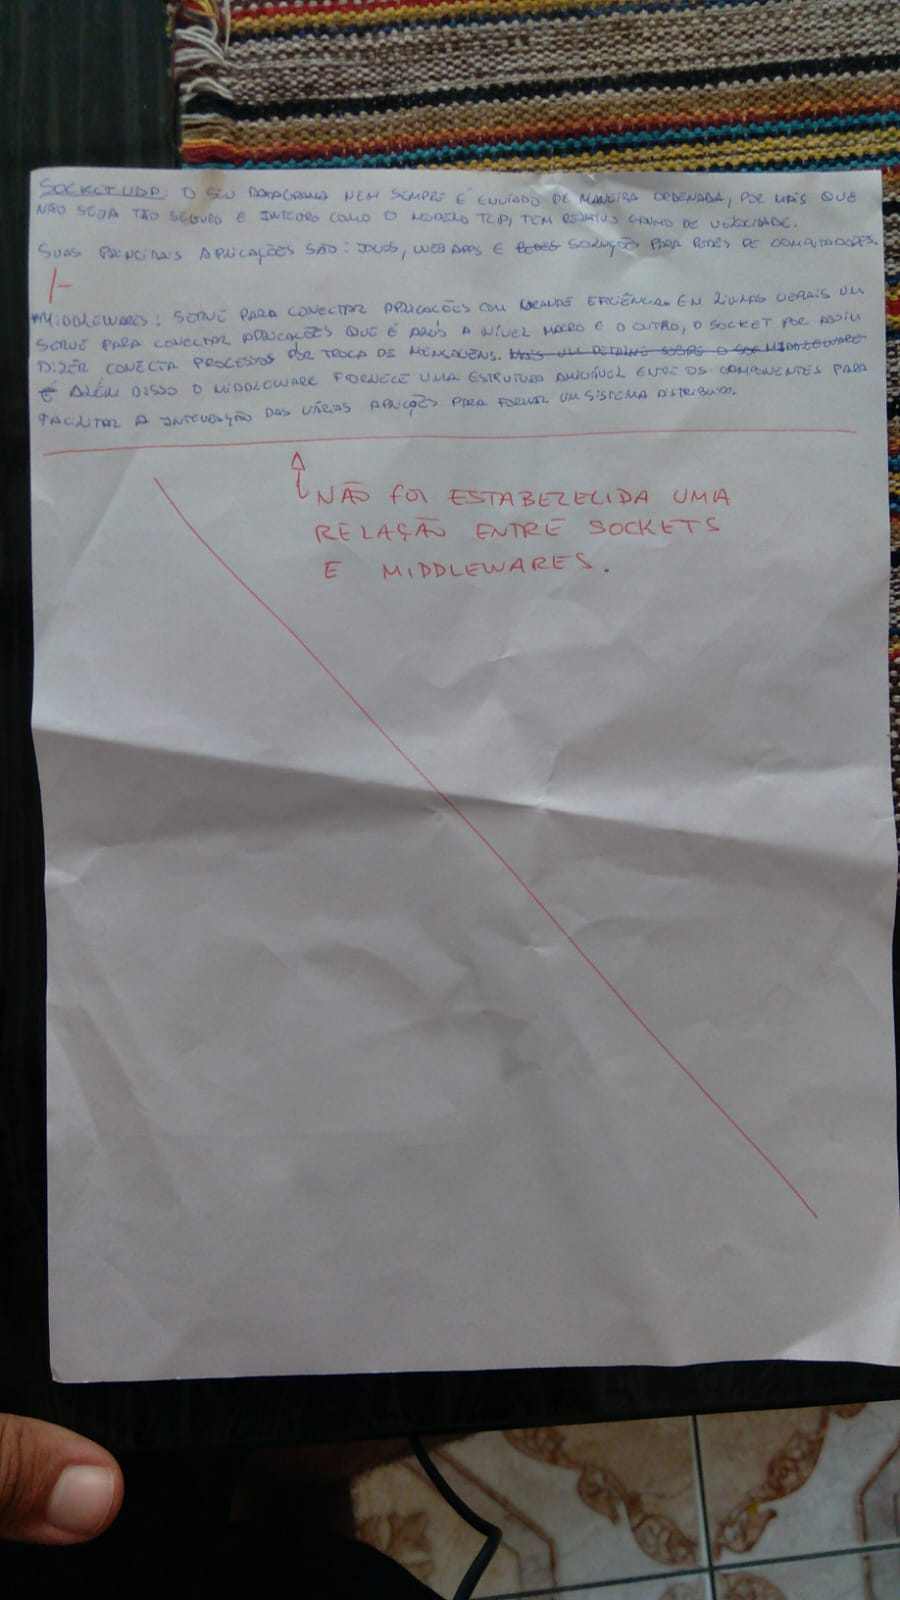 SOCKET UDP: O SEU DATAGRAMA NEM SEMPRE É ENVIADO DE MANEIRA ORDENADA, POR MAIS QUE
NÃO SEJA TÃO SEGURO E INTEGRO COMO O MODELO TCP, TEM GANHO DE VELOCIDADE.
SUAS PRINCIPAIS APLICAÇÕES SÃO: JOGOS, WEB APPS E REDES SOLUÇÕES PARA REDES DE COMPUTADORES.
MIDDLEWARES: SERVE PARA CONECTAR APLICAÇÕES COM GRANDE EFICIÊNCIA. EM LINHAS GERAIS UM
SERVE PARA CONECTAR APLICAÇÕES QUE É A NÍVEL MACRO E O OUTRO, O SOCKET POR ASSIM
DIZER CONECTA PROCESSOS POR TROCA DE MENSAGENS. MAIS UM DETALHE SOBRE O MIDDLEWARE
É ALÉM DISSO O MIDDLEWARE FORNECE UMA ESTRUTURA ENTRE OS COMPONENTES PARA
FACILITAR A INTEGRAÇÃO DAS VÁRIAS PARA FORMAR UM SISTEMA DISTRIBUIDO.
NÃO FOI ESTABELECIDA UMA
RELAÇÃO ENTRE SOCKETS
E MIDDLEWARES.